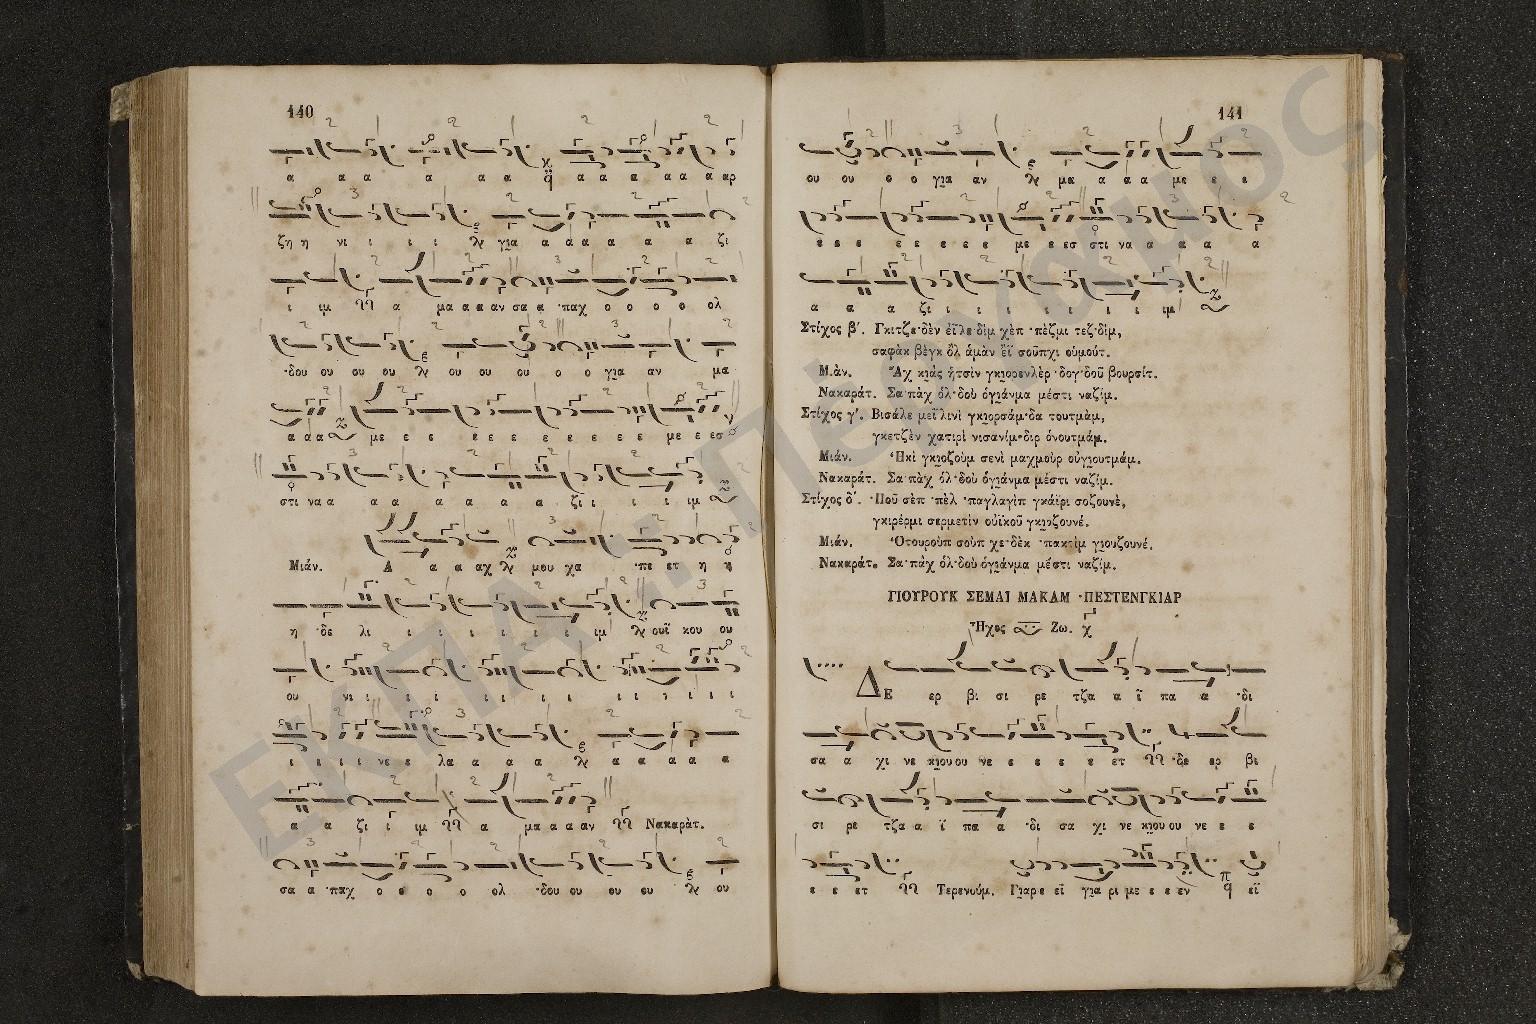 140
α α α α α α α α α α α α αρ
ζη η νι ι ι ι για α α α α α α ζι
ι ιμ α μα α α αν σα α ·παχ ο ο ο ο ολ
·δου ου ου ου ου ου ου ο ο για αν μα
α α α με ε ε ε ε ε ε ε ε ε με ε εσ
στι να α α α α α α α ζι ι ι ι ιμ
Μιάν. Α α α αχ μου χα ·πε ετ η η
η ·δε λι ι ι ι ι ι ι ιμ ουϊ κου ου
ου νι ι ι ι ι ι ι ι ι ι ι ι
ι ι ι ι νε ε λα α α α α α α α α
α α ζι ι ιμ α μα α α αν Νακαράτ.
σα α ·παχ ο ο ο ο ολ ·δου ου ου ου ου
141
ου ου ο ο για αν μα α α α με ε ε
ε ε ε ε ε ε ε ε με ε εσ στι να α α α α
α α α ζι ι ι ι ι ι ι ι ιμ
Στίχος β΄. Γκιτζε·δὲν ἐΐλε δὶμ χὲπ ·πὲζμι τεζ·δὶμ,
σαφὰκ βὲγκ ὂλ ἀμὰν ἒϊ σοῦπχι οὐμούτ.
Μιάν. Ἂχ κιὰς ἠτσὶν γκιορενλὲρ ·δογ·δοῦ βουρσίτ.
Νακαράτ. Σα·πὰχ ὀλ·δοὺ ὀγιάνμα μέστι ναζίμ.
Στίχος γ΄. Βισάλε μεΐλινὶ γκιορσάμ·δα τουτμὰμ,
γκετζὲν χατιρὶ νισανίμ·διρ ὀνουτμάμ.
Μιάν. Ἠκὶ γκιοζοὺμ σενὶ μαχμοὺρ οὐγιουτμάμ.
Νακαράτ. Σα·πὰχ ὀλ·δοὺ ὀγιάνμα μέστι ναζίμ.
Στίχος δ΄. ·Ποῦ σὲπ ·πὲλ ·παγλαγὶπ γκάϊρι σοζουνὲ,
γκιρέρμι σερμετὶν οὐϊκοῦ γκιοζουνέ.
Μιάν. Ὀτουροὺπ σοὺπ χε·δὲκ ·πακτὶμ γιουζουνέ.
Νακαράτ. Σα·πὰχ ὀλ·δοὺ ὀγιάνμα μέστι ναζίμ.
ΓΙΟΥΡΟΥΚ ΣΕΜΑΪ ΜΑΚΑΜ ·ΠΕΣΤΕΝΓΚΙΑΡ
Ἦχος Ζω.
ΔΕ ερ βι σι ρε τζα α ϊ πα α ·δι
σα α χι νε κιου ου νε ε ε ε ε ε ετ ·δε ερ βι
σι ρε τζα α ϊ πα α ·δι σα χι νε κιου ου νε ε ε
ε ε ετ Τερενούμ. Γιαρ ε εϊ για ρι με ε ε εν εϊ